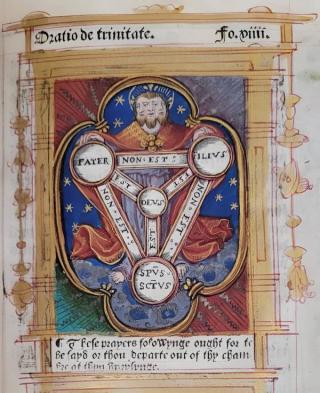 Oratio de trinitate. Fo. viii.
PATER NON·EST· FILIUS
EST EST
DEUS
NON·EST· EST NON·EST·
SPŪS
SCTUS
¶ These prayers folowynge ought for to
be sayd or thou departe out of thy cham
bre at thyn uprysynge.